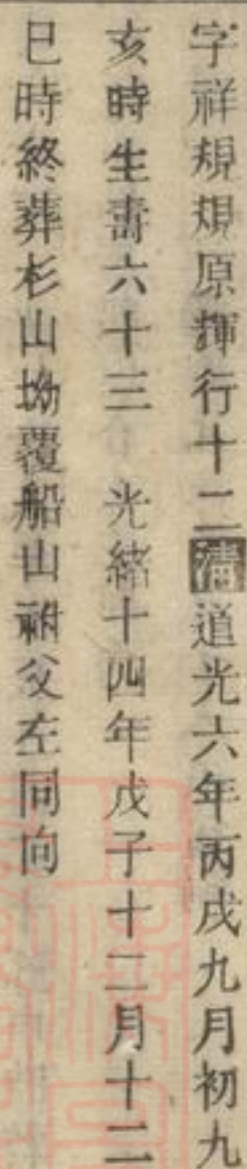 字祥規規原輝行十二清道光六年丙戌九月初九
亥時生壽六十三 光緒十四年戊子十二月十二
巳時終葬杉山坳覆船山祔父左同向